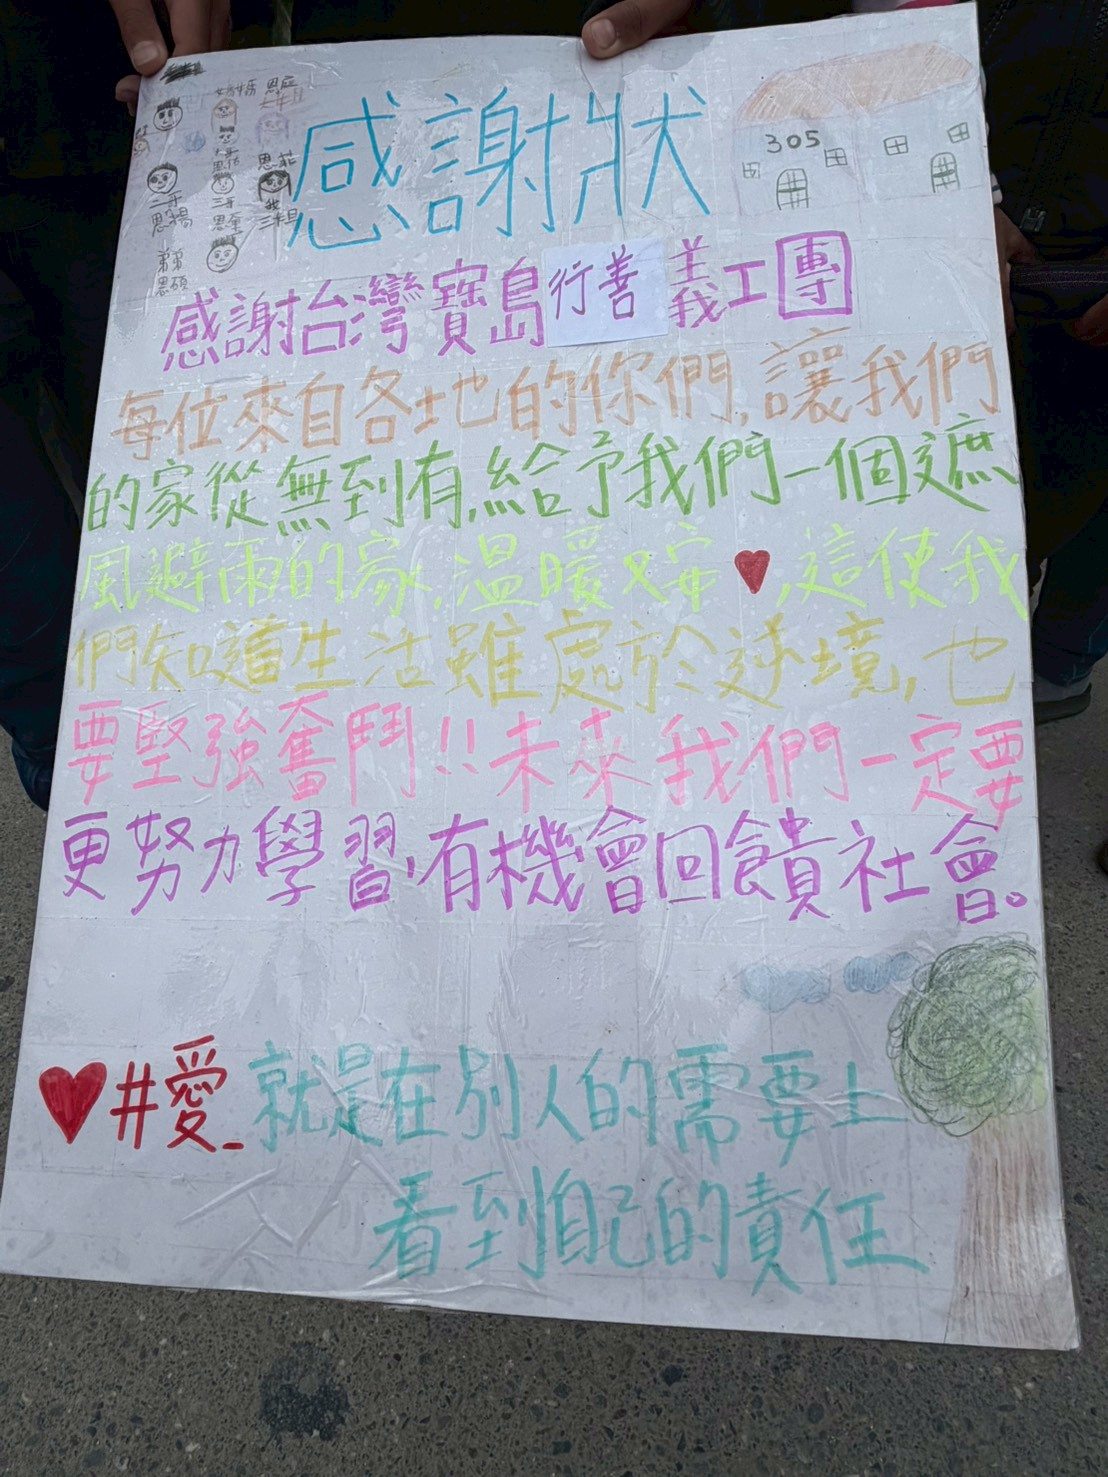 感謝狀
305
感謝台灣寶島行善義工團
每位來自各地的你們,讓我們
的家從無到有,給予我們一個遮
風避雨的家,溫暖又安♥,這使我
們知道生活雖處於逆境,也
要堅強奮鬥!!未來我們一定要
更努力學習,有機會回饋社會。
♥#愛_就是在別人的需要上
看到自己的責任